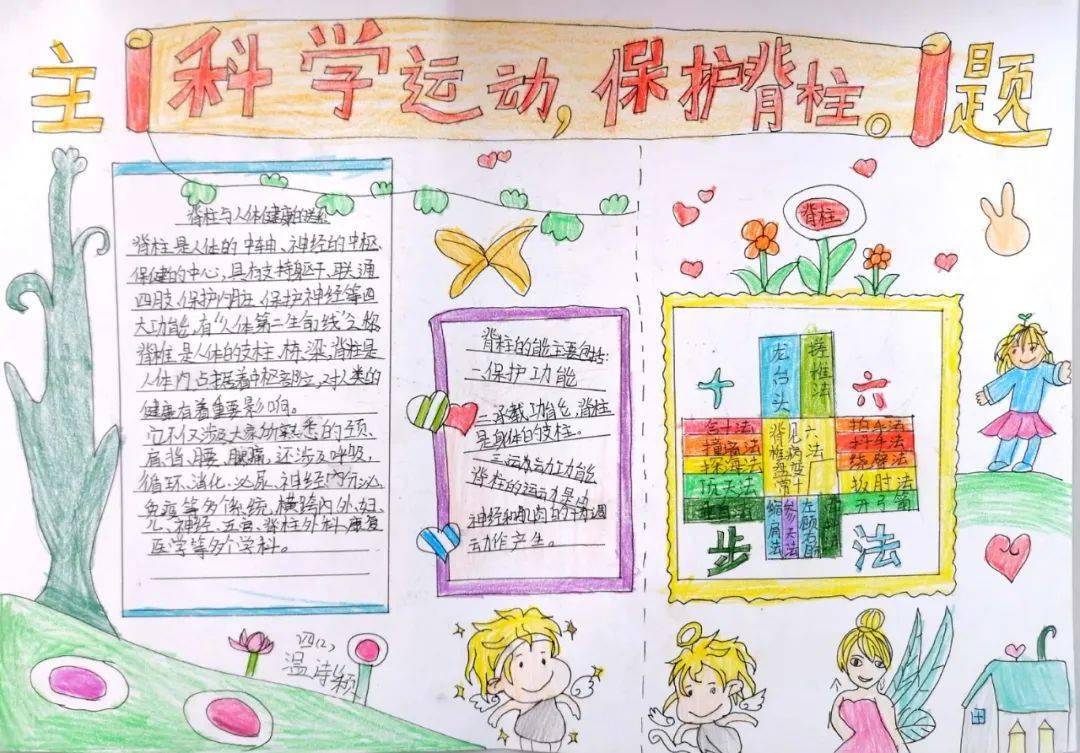 主 科学运动，保护背柱。 题
脊柱与人体健康的
脊柱是人体的中轴、神经的中枢、
保健的中心，具有支持躯干、联通
四肢、保护内脏、保护神经等四
大功能，有“人体第二生命线”之称
脊椎是人体的支柱、桥、梁，脊柱是
人体内占据着中枢部位，对人类的
健康有着重要影响。
它不仅涉及大家所熟悉的颈、
肩、背、腰、腿痛，还涉及呼吸、
循环、消化、泌尿、神经内分泌、
免疫等多个系统，横跨内、外、妇、
儿、神经、五官、脊柱外科、康复
医学等多个学科。
脊柱的能主要包括：
一保护功能
二承载功能，脊柱
是身体的支柱。
三运动功能
脊柱的运动是由
神经和肌肉的协调
动作产生。
脊柱
十 六
步 法
龙台头
搓椎法
撞墙法
探海法
顶天法
拍手法
扶肘法
开弓箭
缩肩法
参天法
左顾右盼
温诗颖